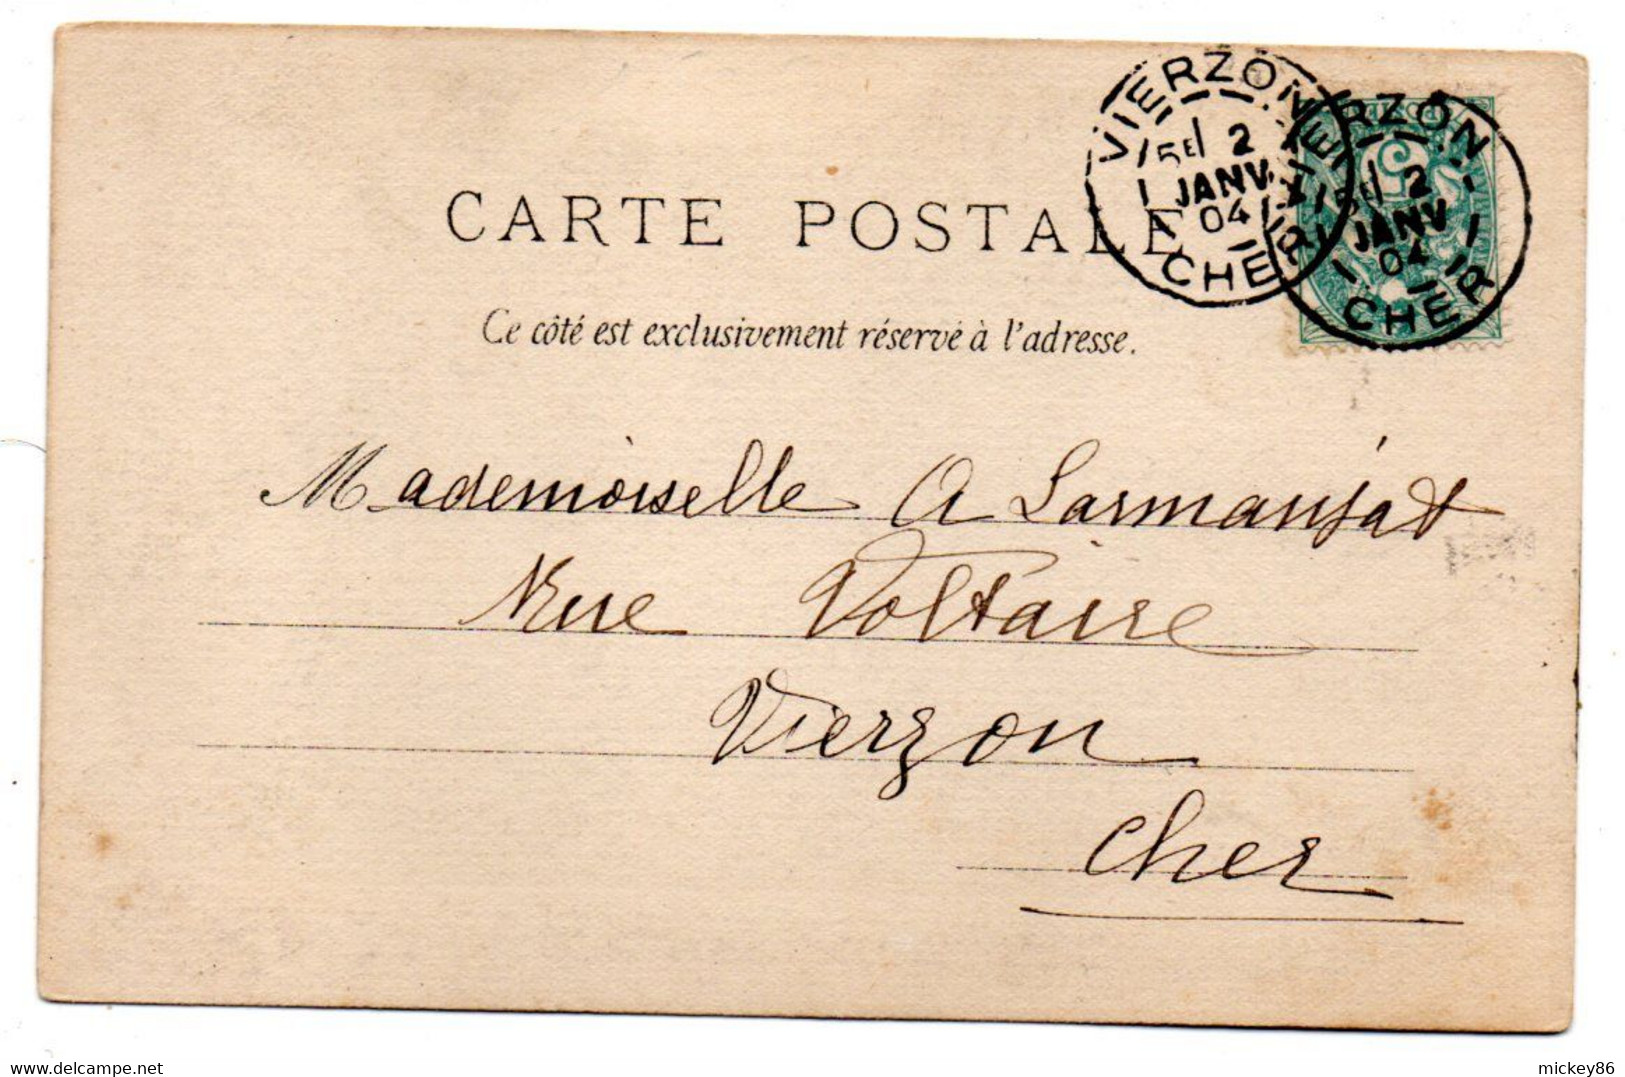 CARTE POSTALE
Ce côté est exclusivement réservé à l'adresse.
VIERZON
5E 2
JANV
04
CHER
VIERZON
5E 2
JANV
04
CHER
5
Mademoiselle A Larmanjat
Rue Voltaire
Vierzon
Cher
www.delcampe.net
mickey86